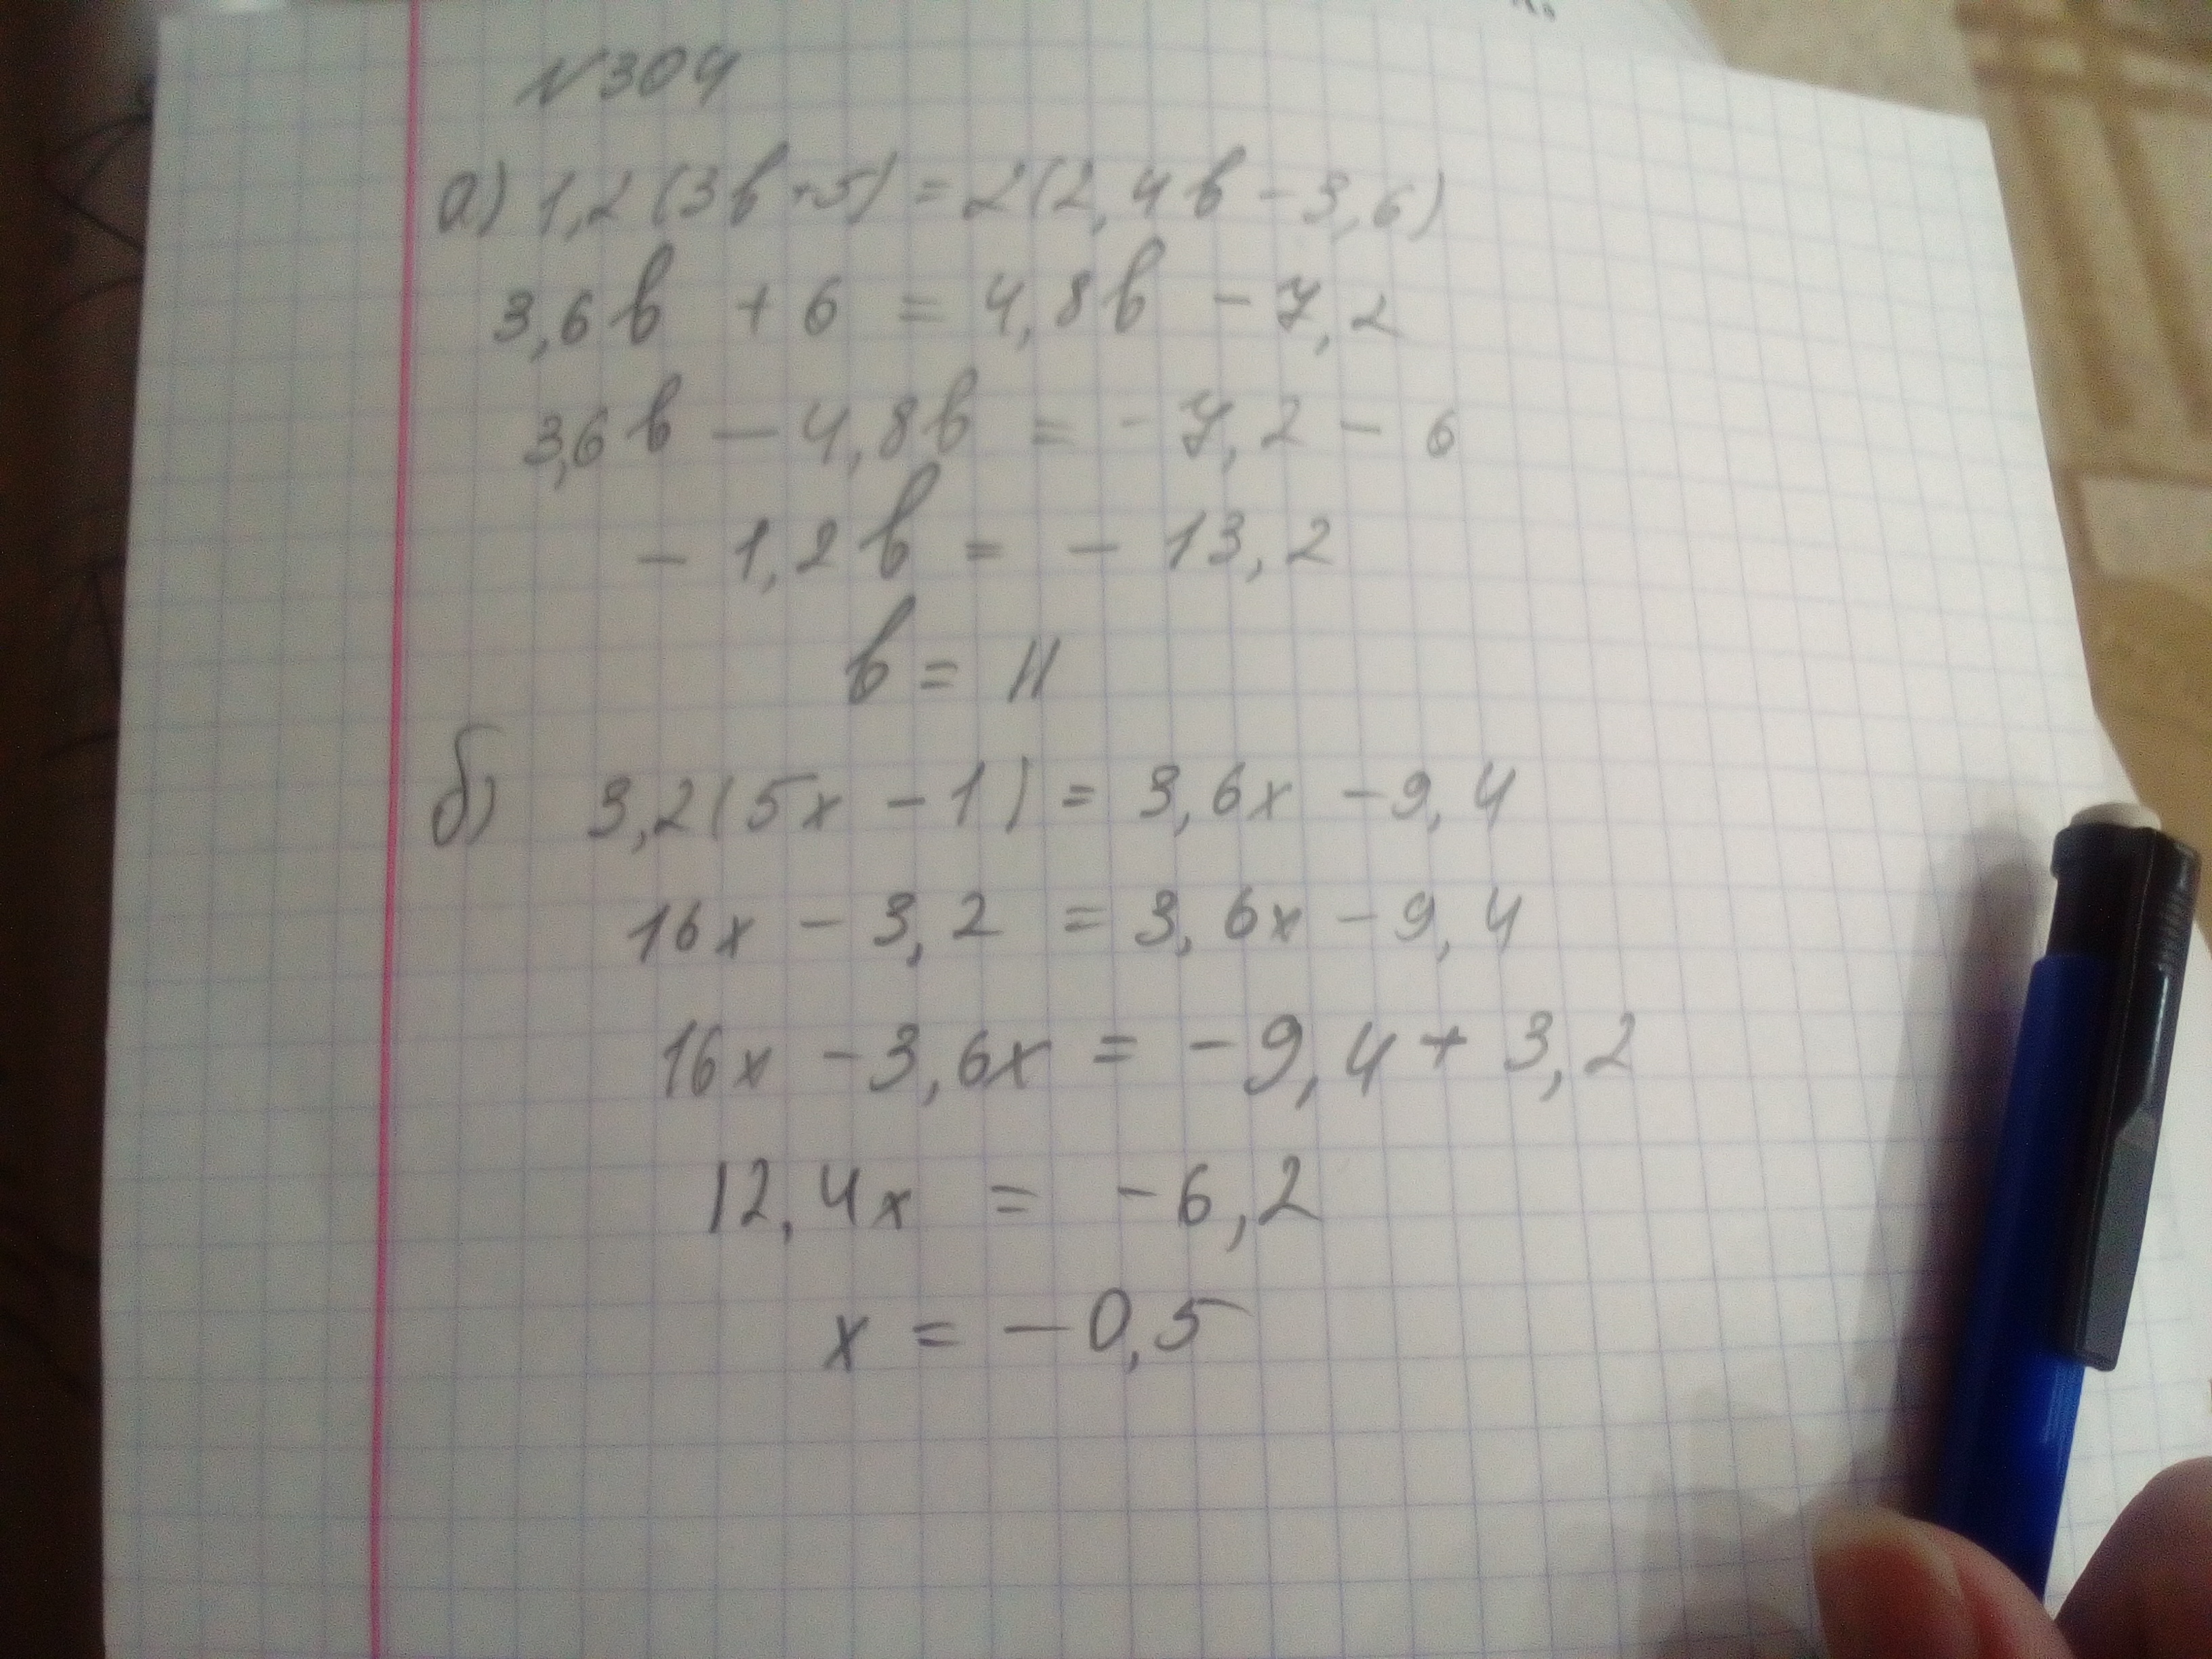 №304
а) 1,2(3в+5) = 2(2,4в - 3,6)
3,6в + 6 = 4,8в - 7,2
3,6в - 4,8в = - 7,2 - 6
- 1,2в = - 13,2
в = 11
б) 3,2(5x - 1) = 3,6x - 9,4
16x - 3,2 = 3,6x - 9,4
16x - 3,6x = - 9,4 + 3,2
12,4x = - 6,2
x = - 0,5